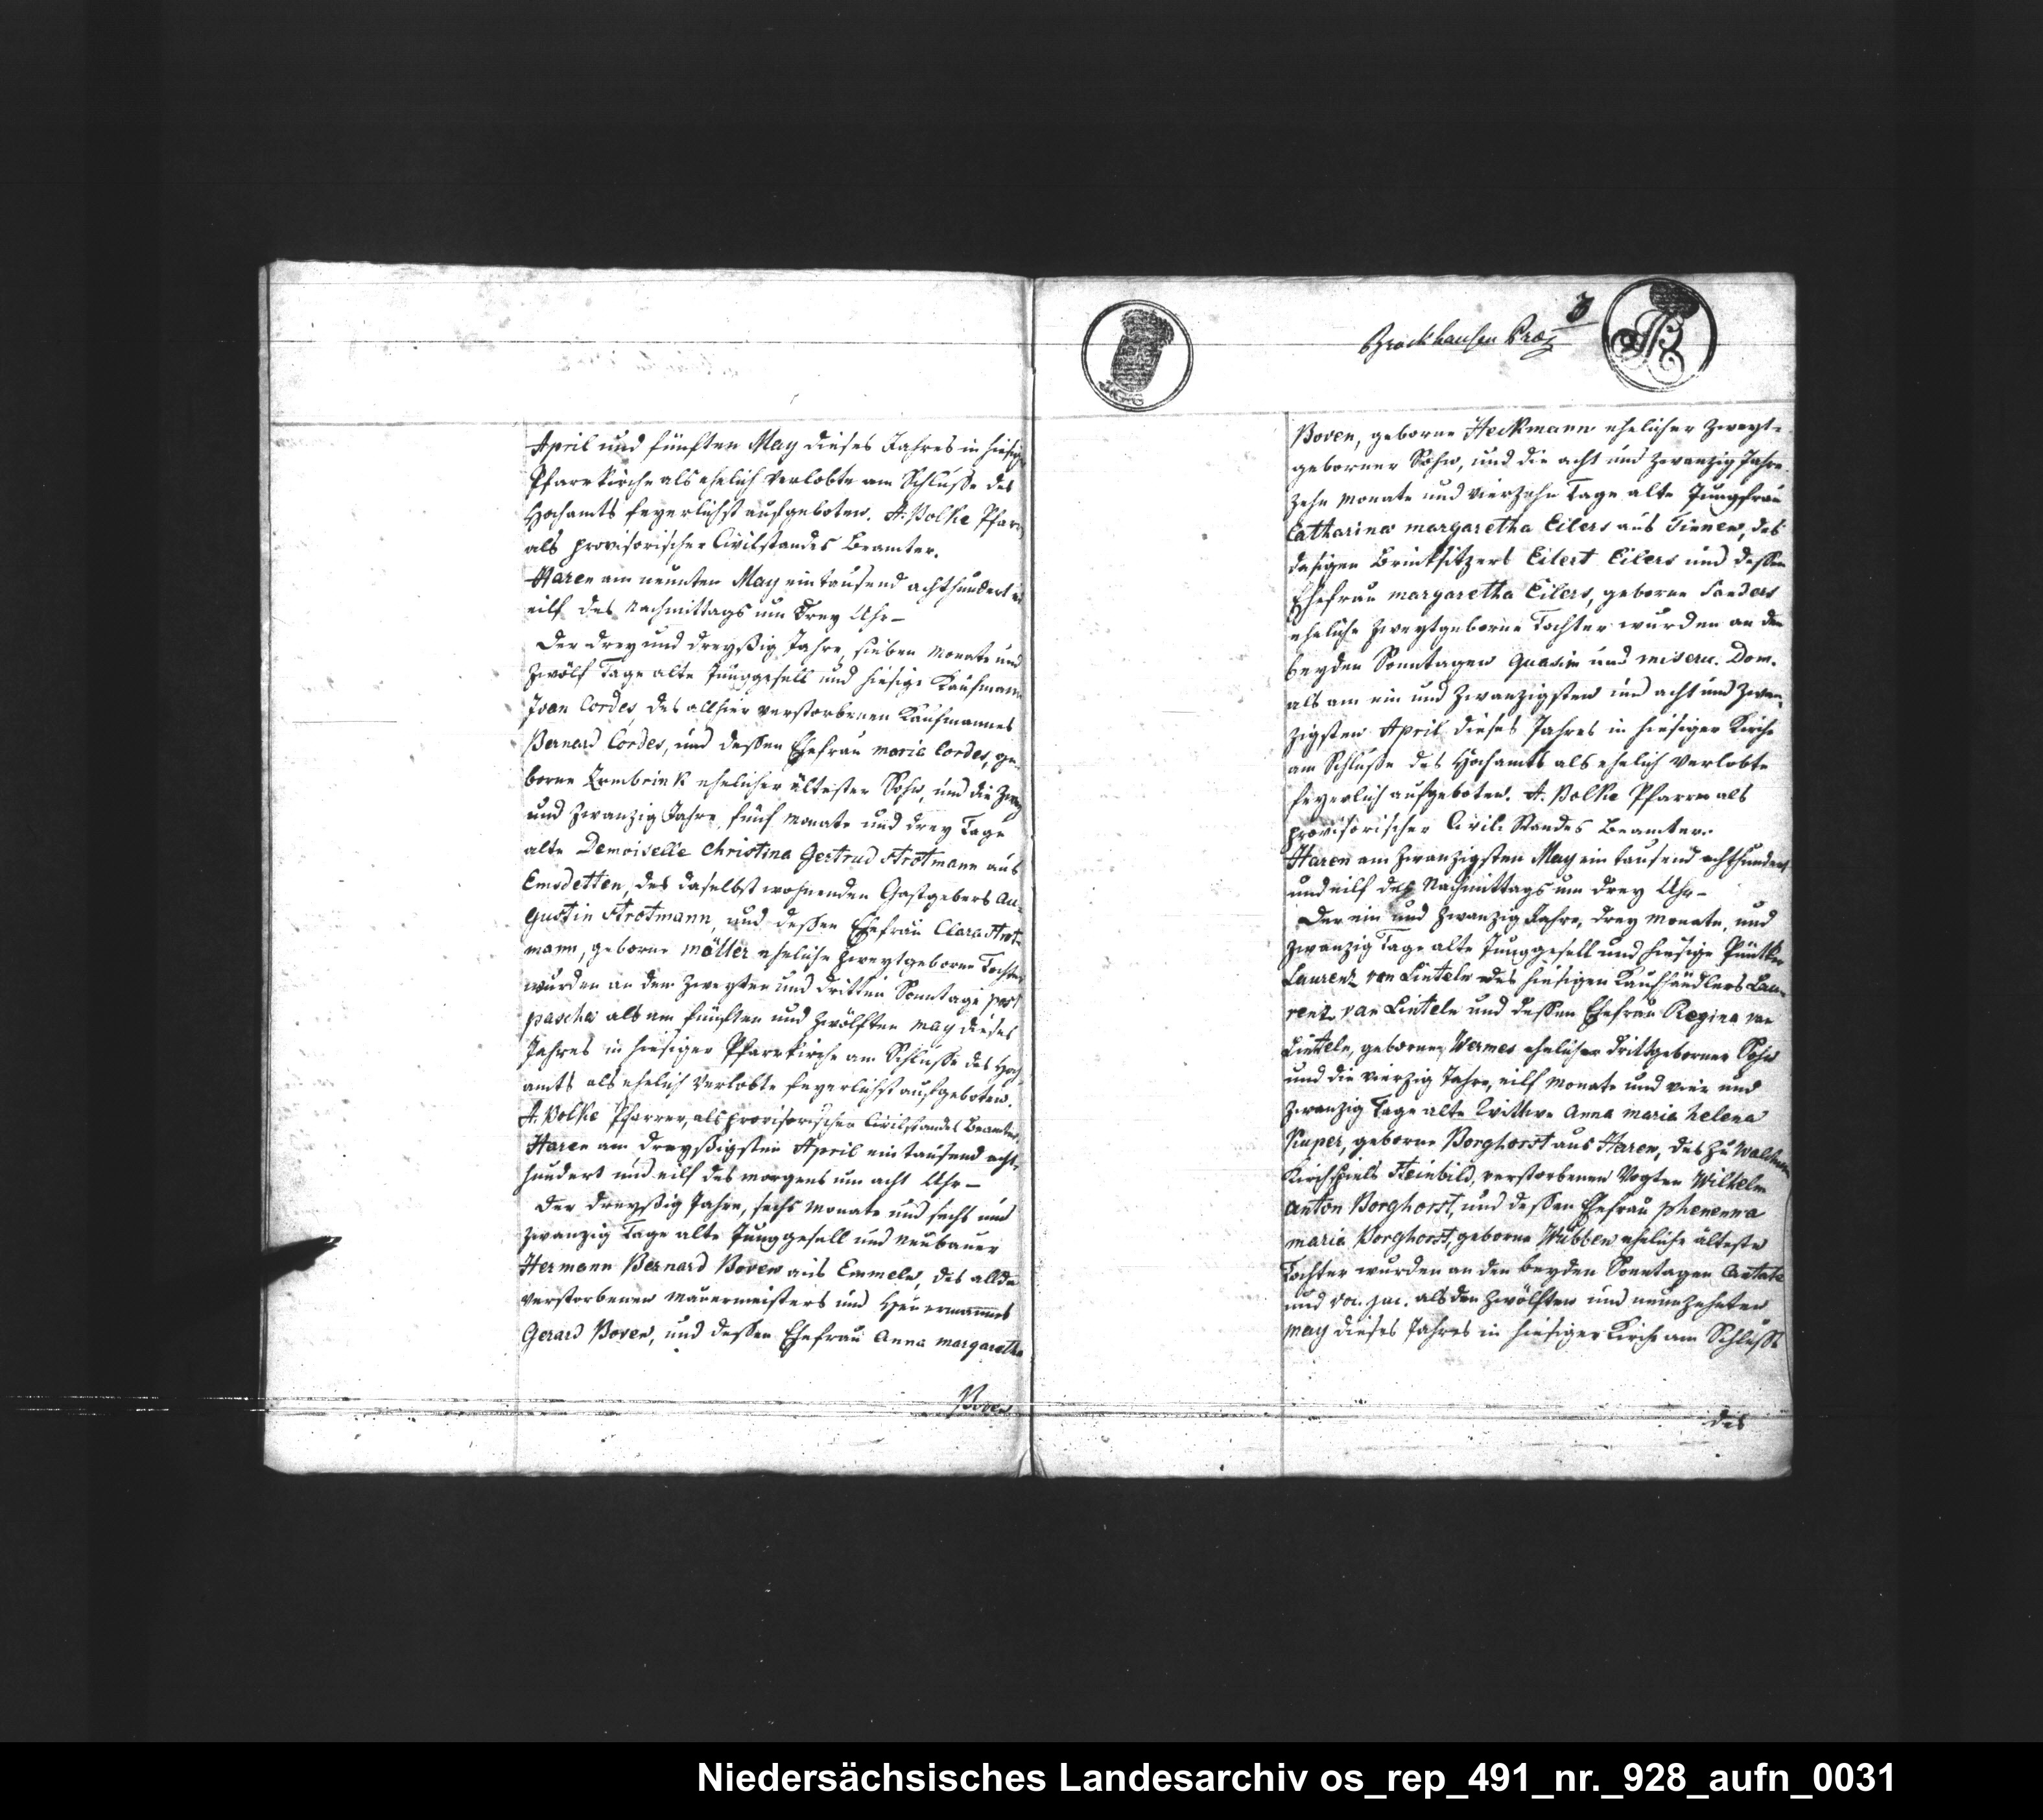 April und fünften May dieses Jahres in hiesiger
Pfarrkirche als ehelich Verlobte am Schluße des
Hochamts feyerlichst aufgeboten. A. Bolke Pfarrer
als provisorischer Civilstandes Beamter.
Haren am neunten May ein tausend achthundert
eilf des Nachmittags um Drey Uhr –
Der drey und dreyßig Jahre, sieben Monate und
zwölf Tage alte Junggesell und hiesige Kaufmann
Joan Cordes, des allhier verstorbenen Kaufmannes
Bernard Cordes, und deßen Ehefrau Maria Cordes, ge-
borne ehelicher ältester Sohn, und die zwey
und zwanzig Jahre, fünf Monate und drey Tage
alte Demoiselle Christina Gertrud Strotmann aus
Emsdetten, des daselbst wohnenden Gastgebers Au-
gustin Strotmann, und deßen Ehefrau Clara Strot-
mann, geborne Möller eheliche zweytgeborne Tochter
wurden an dem zweyten und dritten Sonntage post
pascha als am fünften und zwölften May dieses
Jahres in hiesiger Pfarrkirche am Schluße des Hoch-
amts als ehelich Verlobte feyerlichst aufgeboten.
A. Bolke Pfarrer, als provisorischer Civilstandes Beamter.
Haren am dreyßigsten April ein tausend acht-
hundert und eilf des Morgens um acht Uhr –
Der dreyßig Jahre, sechs Monate und sechs und
zwanzig Tage alte Junggesell und Neubauer
Hermann Bernard Boven aus Emmeln, des allda
verstorbenen Mauermeisters und Heuermannes
Gerard Boven, und deßen Ehefrau Anna Margaretha
Boven
3
Brockhausen
Boven, geborne Heckmann ehelicher zweyt-
geborner Sohn, und die acht und zwanzig Jahre
zehn Monate und vierzehn Tage alte Jungfrau
Catharina Margaretha Eilers aus Tinnen, des
dasigen Brinksitzers Eilert Eilers und deßen
Ehefrau Margaretha Eilers, geborne Sanders
eheliche zweytgeborne Tochter wurden an den
beyden Sonntagen Quasim und Miseric. Dom.
als am ein und zwanzigsten und acht und zwan-
zigsten April dieses Jahres in hiesiger Kirche
am Schluße des Hochamts als ehelich Verlobte
feyerlich aufgeboten. A. Bolke Pfarrer als
provisorischer Civil Standes Beamter.
Haren am zwanzigsten May ein tausend achthundert
und eilf des Nachmittags um drey Uhr –
Der ein und zwanzig Jahre, drey Monate, und
zwanzig Tage alte Junggesell und hiesige Püntker
Laurenz van Linteln des hiesigen Kaufhändlers Lau-
renz van Linteln und deßen Ehefrau Regina van
Linteln, geborner Wermes ehelicher drittgeborner Sohn
und die vierzig Jahre, eilf Monate und vier und
zwanzig Tage alte Wittwe Anna Maria Helena
Kuper, geborne Borghorst aus Haren, des zu
Kirchspiels Steinbild, verstorbenen Vogten Wilhelm
Anton Borghorst, und deßen Ehefrau Phenenna
Maria Borghorst, geborne Wübben eheliche älteste
Tochter wurden an den beyden Sonntagen Cantate
und voc. juc. als den zwölften und neunzehnten
May dieses Jahres in hiesiger Kirche am Schluße
des
Niedersächsisches Landesarchiv os_rep_491_nr._928_aufn_0031